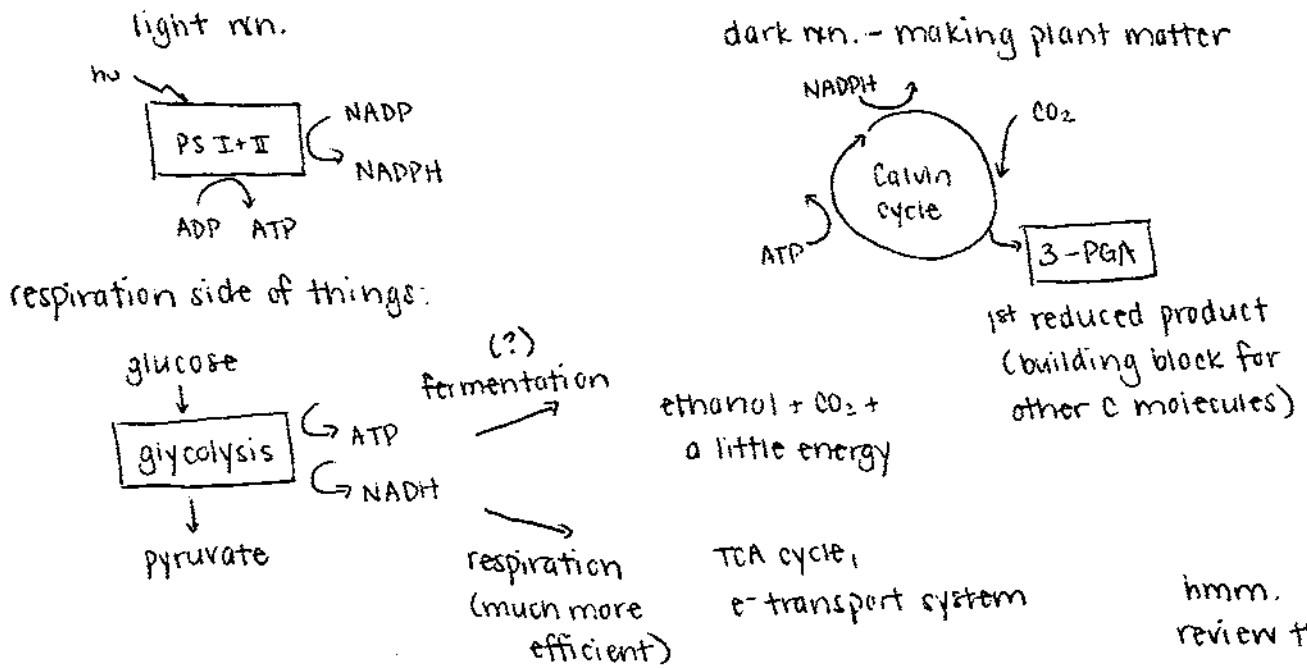 light rxn.
hν
PS I+II
NADP
NADPH
ADP ATP
dark rxn. - making plant matter
NADPH
CO₂
Calvin
cycle
ATP
3-PGA
1st reduced product
(building block for
other C molecules)
respiration side of things:
glucose
glycolysis
ATP
NADH
pyruvate
(?)
fermentation
ethanol + CO₂ +
a little energy
respiration
(much more
efficient)
TCA cycle,
e- transport system
hmm.
review